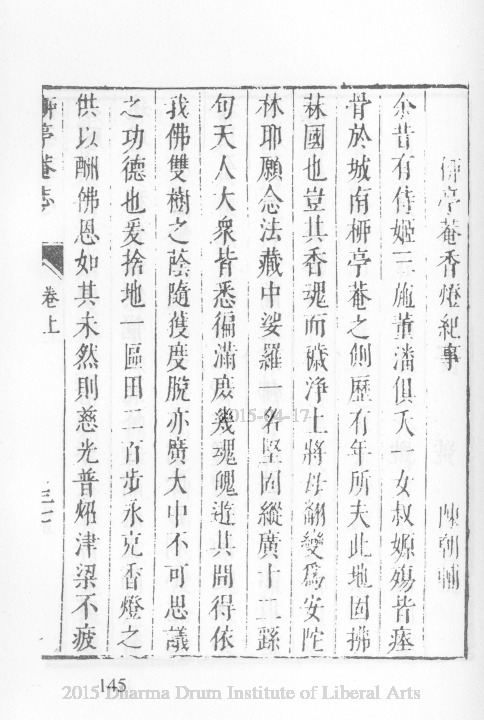 柳亭菴香燈紀事　陳朝輔
余昔有侍姬三施董潘俱夭　女叔嫄殤皆瘞
骨於城南柳亭菴之側歷有年所夫此地固拂
菻國也豈其香魂而穢淨土將毋翻變爲安陀
林耶願念法藏中娑羅一名堅固縱廣十二繇
句天人大衆皆悉徧滿庶幾魂魄遊其間得依
我佛雙樹之蔭隨獲度脫亦廣大中不可思議
之功德也爰捨地一區田二百步永充香燈之
供以酬佛恩如其未然則慈光普炤津梁不疲
柳亭菴志
卷上
三七
145
2015-04-17
2015 Dharma Drum Institute of Liberal Arts